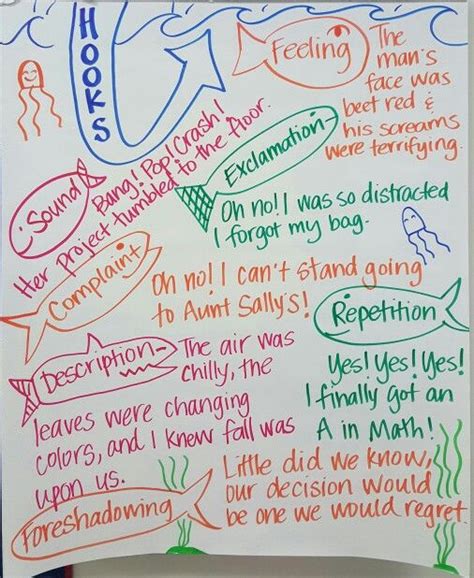 HOOKS
Feeling
The
man's
face was
beet red &
his screams
were terrifying.
Sound
Bang! Pop! Crash!
Her project tumbled to the floor.
Exclamation
Oh no! I was so distracted
I forgot my bag.
Complaint
Oh no! I can't stand going
to Aunt Sally's!
Repetition
Yes! Yes! Yes!
I finally got an
A in Math!
Description
The air was
chilly, the
leaves were changing
colors, and I knew fall was
upon us.
Foreshadowing
Little did we know,
our decision would
be one we would regret.